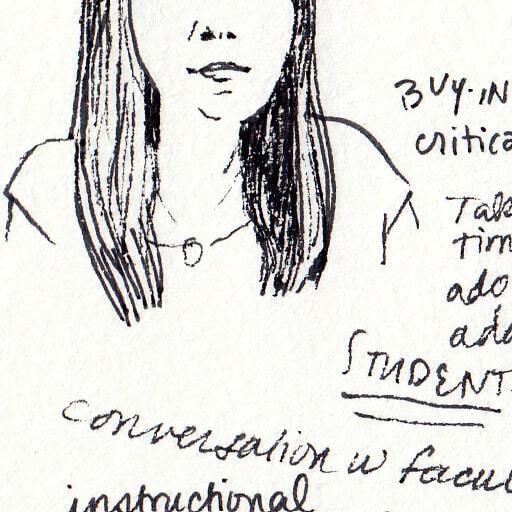 BUY-IN
critica
Tak
tim
ado
add
STUDENT
conversation w facul
instructional